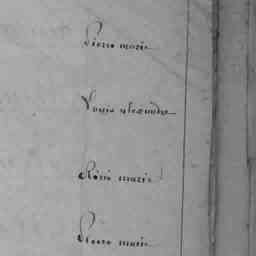 Pierre marie
Louis alexandre
Réné marie
Pierre marie